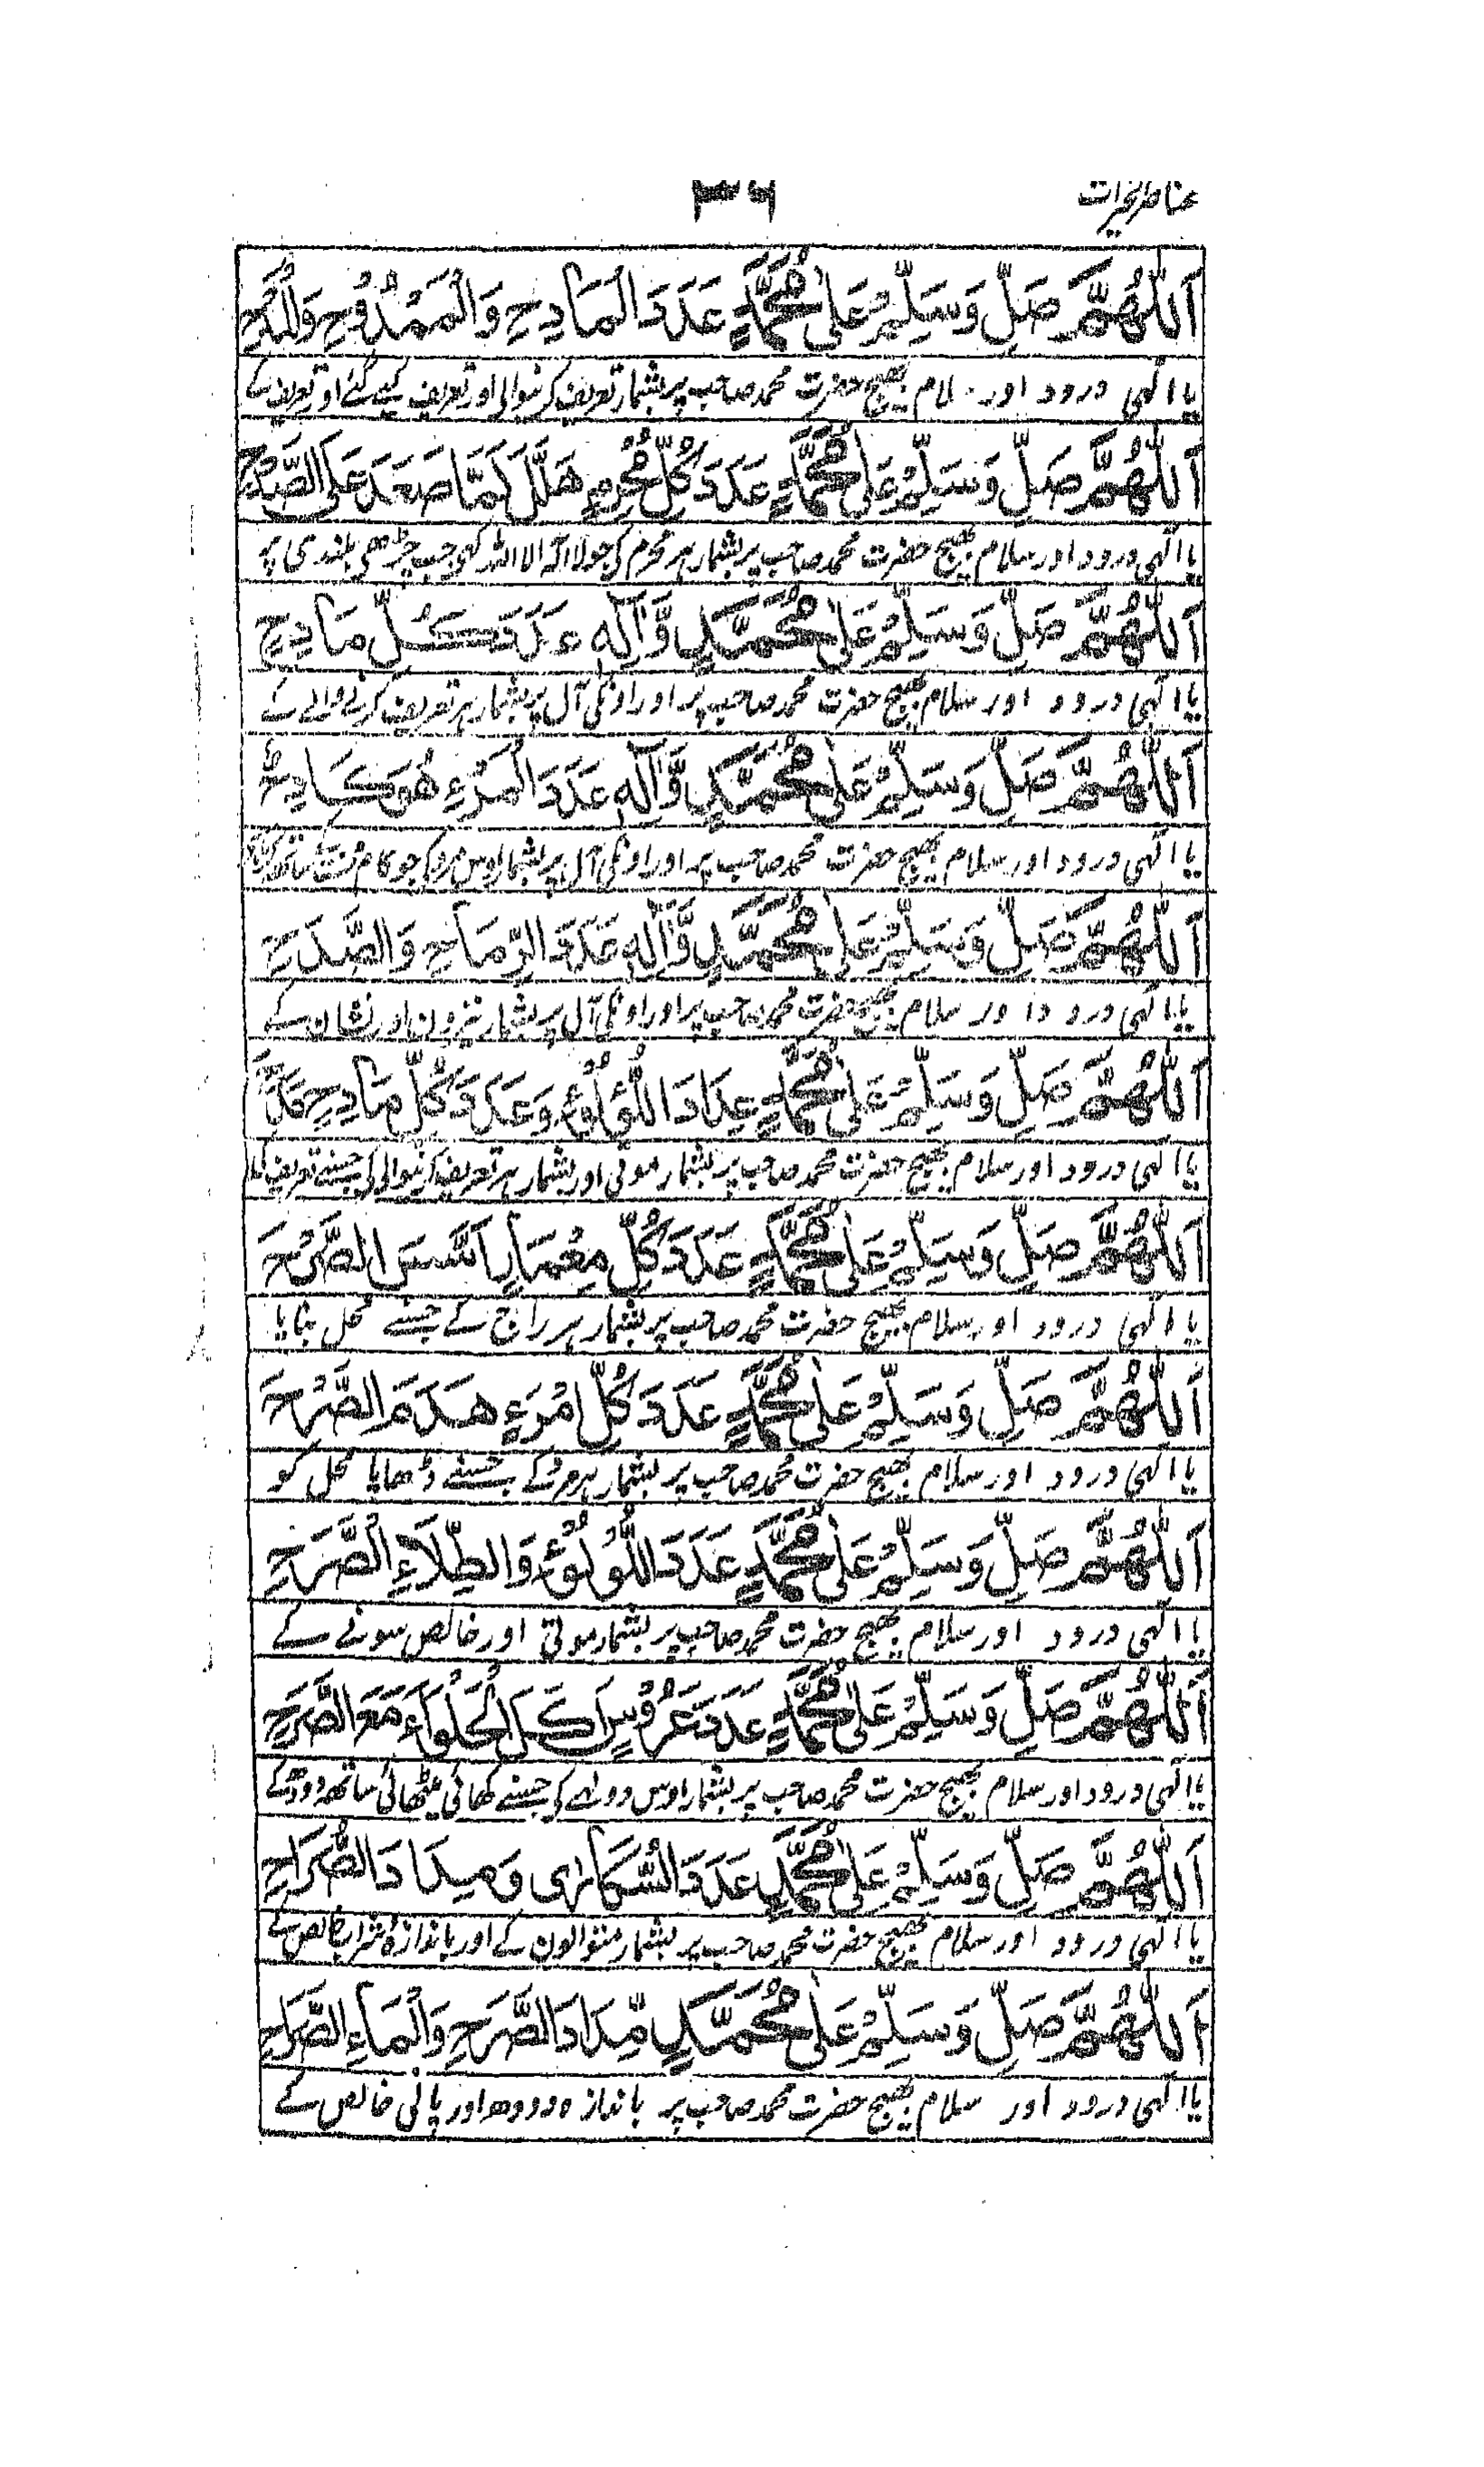 عناصر الخیرات ۳۶
اَللّٰهُمَّ صَلِّ وَسَلِّمْ عَلٰی مُحَمَّدٍ عَدَدَ الْمَادِحِ وَالْمَمْدُوْحِ وَالْمَدْحِ
یا الٰہی درود اور سلام بھیج حضرت محمد صاحب پر بشمار تعریف کرنیوالی اور تعریف کیے گئے اور تعریف کے
اَللّٰهُمَّ صَلِّ وَسَلِّمْ عَلٰی مُحَمَّدٍ عَدَدَ كُلِّ مُحْرِمٍ هَلَّلَ لَمَّا صَعَدَ عَلَی
یا الٰہی درود اور سلام بھیج حضرت محمد صاحب پر بشمار ہر محرم کی جو لا الہ الا اللہ کہی جب چڑھی بلندی پر
اَللّٰهُمَّ صَلِّ وَسَلِّمْ عَلٰی مُحَمَّدٍ وَّاٰلِهٖ عَدَدَ كُلِّ مَادِحٍ
یا الٰہی درود اور سلام بھیج حضرت محمد صاحب پر اور اونکی آل پر بشمار ہر تعریف کرنے والے کے
اَللّٰهُمَّ صَلِّ وَسَلِّمْ عَلٰی مُحَمَّدٍ وَّاٰلِهٖ عَدَدَ الْمَرْءِ هُوَ كَادِحٌ
یا الٰہی درود اور سلام بھیج حضرت محمد صاحب پر اور اونکی آل پر بشمار اوس مرد کی جو کام
اَللّٰهُمَّ صَلِّ وَسَلِّمْ عَلٰی مُحَمَّدٍ وَّاٰلِهٖ عَدَدَ الرِّمَاحِ وَالصَّدَحِ
یا الٰہی درود اور سلام بھیج حضرت محمد صاحب پر اور اونکی آل پر بشمار نیزون اور نشان کے
اَللّٰهُمَّ صَلِّ وَسَلِّمْ عَلٰی مُحَمَّدٍ عِدَادَ اللُّؤْلُؤِ وَعَدَدَ كُلِّ مَادِحٍ مَدَحَ
یا الٰہی درود اور سلام بھیج حضرت محمد صاحب پر بشمار موتی اور بشمار ہر تعریف کرنیوالی کی جسنے تعریف کی
اَللّٰهُمَّ صَلِّ وَسَلِّمْ عَلٰی مُحَمَّدٍ عَدَدَ كُلِّ مِعْمَارٍ اَسَّسَ الصَّرْحَ
یا الٰہی درود اور سلام بھیج حضرت محمد صاحب پر بشمار ہر راج کے جسنے محل بنایا
اَللّٰهُمَّ صَلِّ وَسَلِّمْ عَلٰی مُحَمَّدٍ عَدَدَ كُلِّ امْرَءٍ هَدَمَ الصَّرْحَ
یا الٰہی درود اور سلام بھیج حضرت محمد صاحب پر بشمار ہر مرد کے جسنے ڈھایا محل کو
اَللّٰهُمَّ صَلِّ وَسَلِّمْ عَلٰی مُحَمَّدٍ عَدَدَ اللُّؤْلُؤِ وَالطِّلَاءِ الصَّرَحِ
یا الٰہی درود اور سلام بھیج حضرت محمد صاحب پر بشمار موتی اور خالص سونے کے
اَللّٰهُمَّ صَلِّ وَسَلِّمْ عَلٰی مُحَمَّدٍ عَدَدَ عَرُوْسٍ اَكَلَ الْحَلْوَاءَ مَعَ الصَّرَحِ
یا الٰہی درود اور سلام بھیج حضرت محمد صاحب پر بشمار اوس دولہے کی جسنے کھائی مٹھائی ساتھ دودھ کے
اَللّٰهُمَّ صَلِّ وَسَلِّمْ عَلٰی مُحَمَّدٍ عَدَدَ السُّكَارٰی وَمِدَادَ الصُّرَاحِ
یا الٰہی درود اور سلام بھیج حضرت محمد صاحب پر بشمار متوالون کے اور باندازہ شراب خالص کے
اَللّٰهُمَّ صَلِّ وَسَلِّمْ عَلٰی مُحَمَّدٍ مِّدَادَ الصَّرَحِ وَالْمَاءِ الصَّرَاحِ
یا الٰہی درود اور سلام بھیج حضرت محمد صاحب پر باندازہ دودھ اور پانی خالص کے